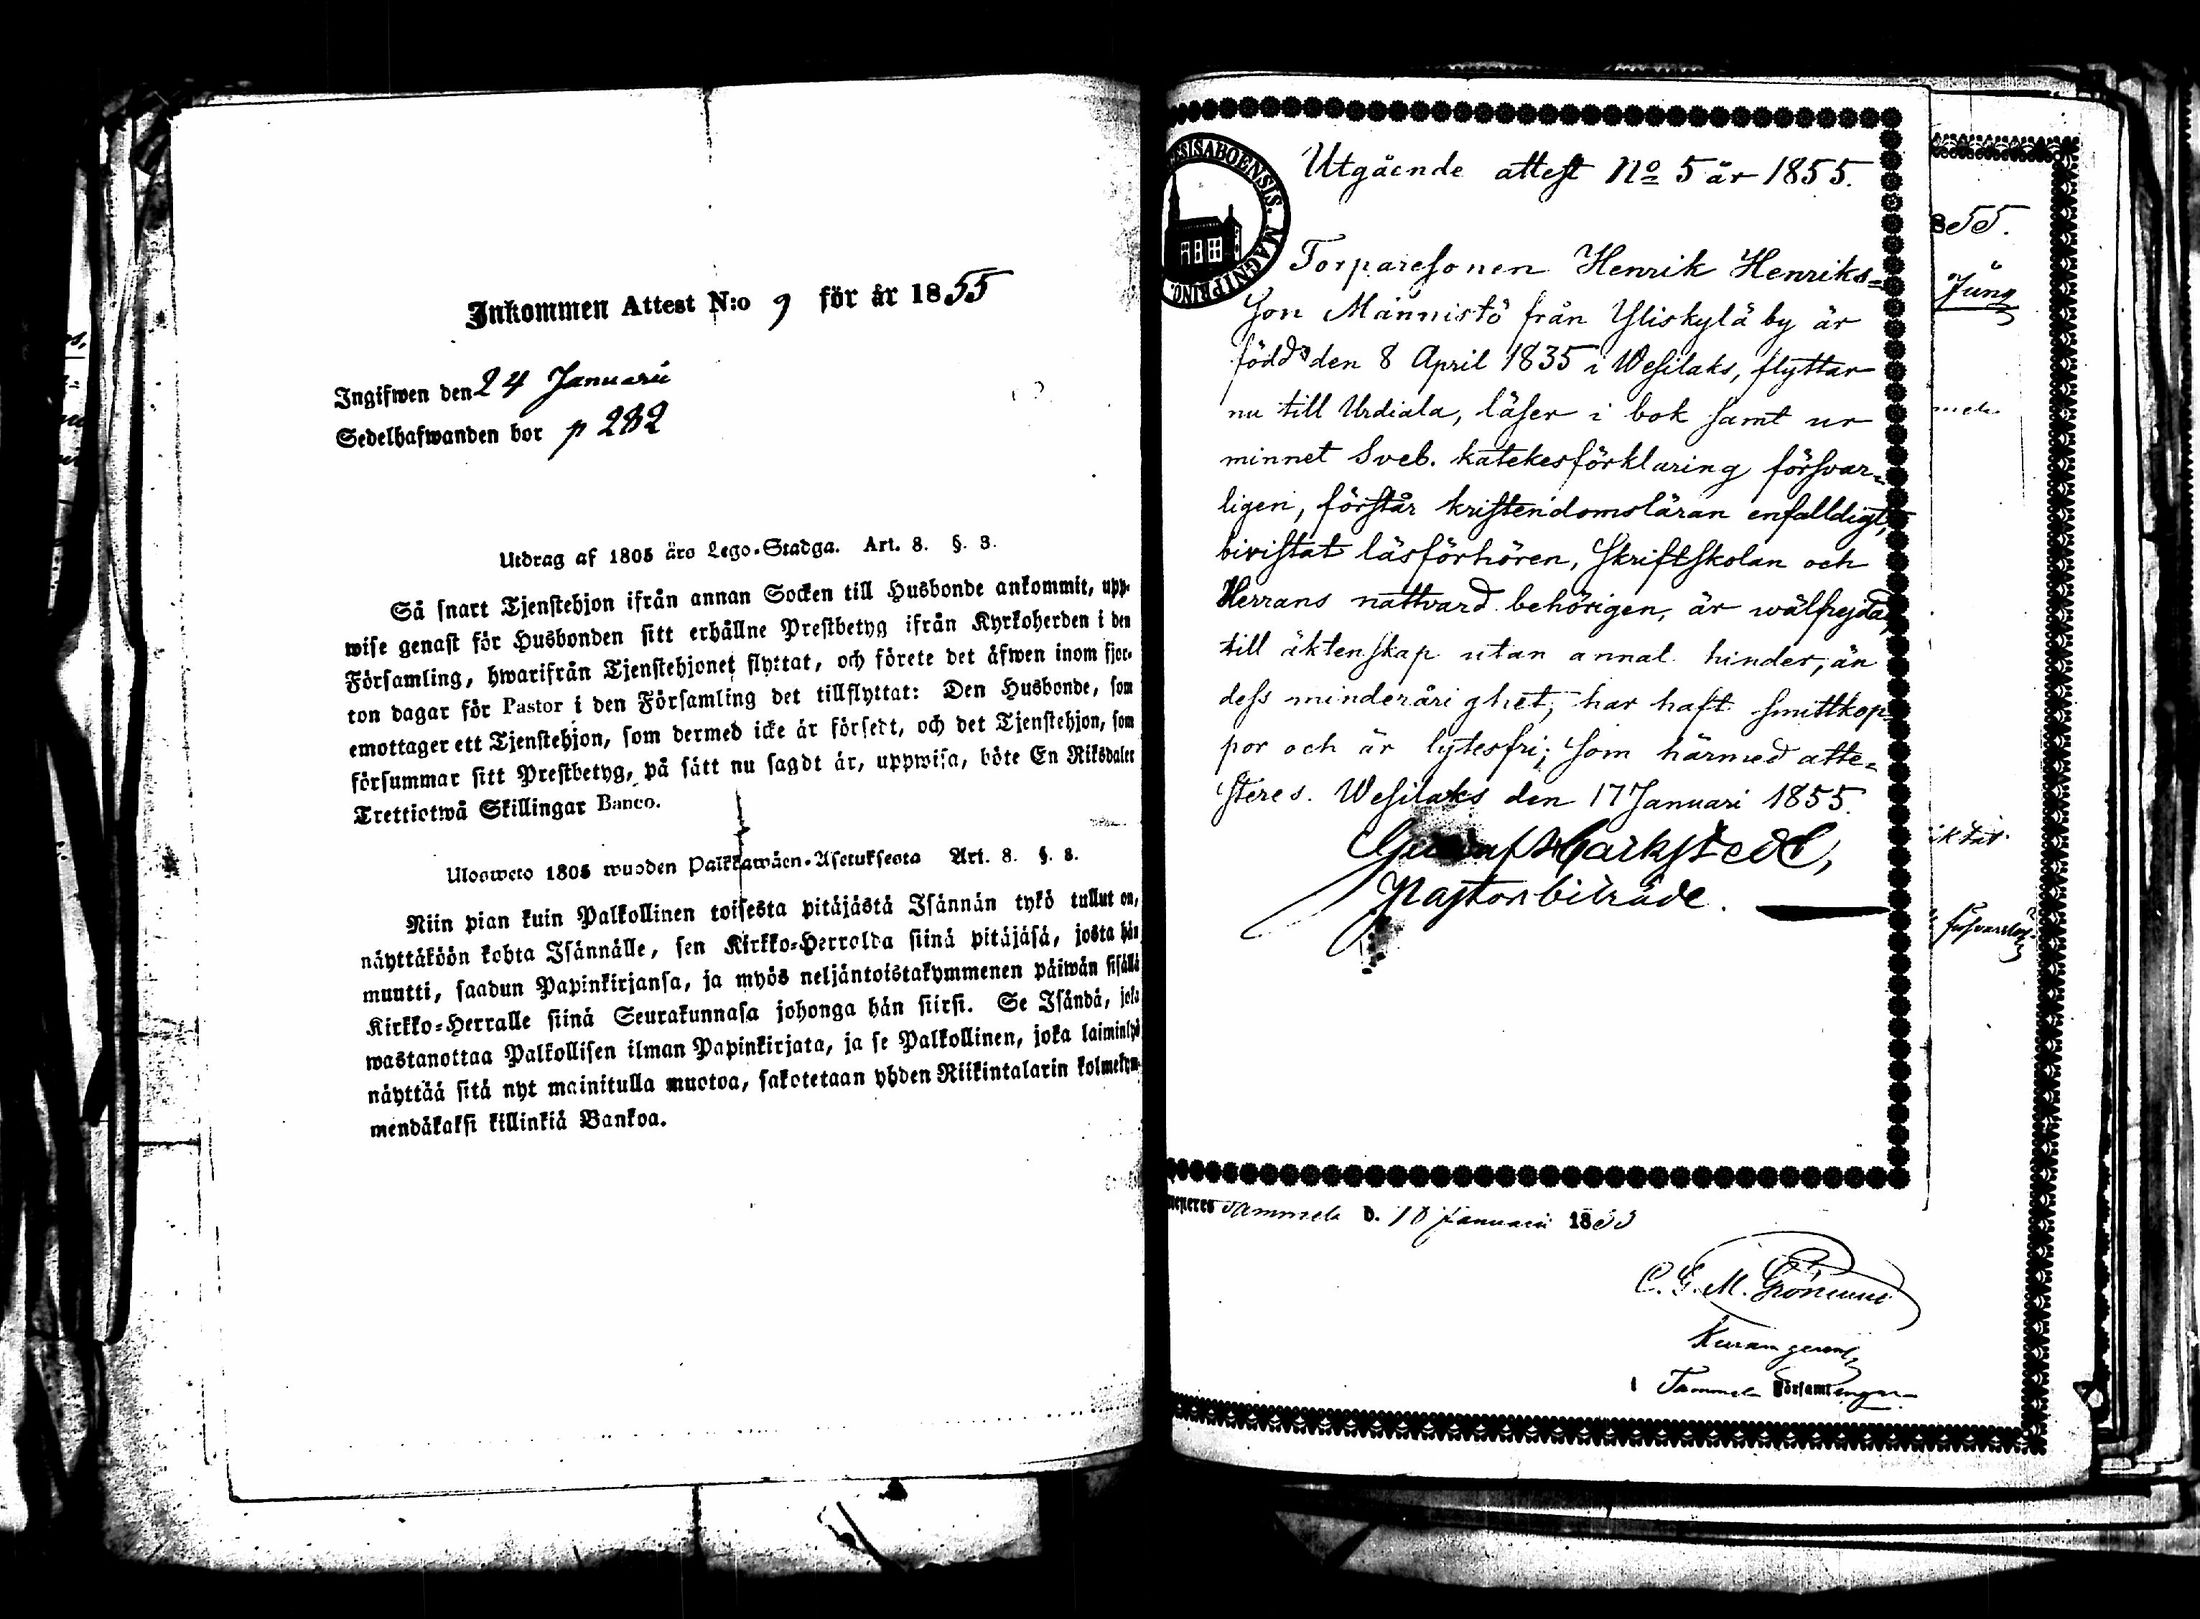 Inkommen Attest N:o 9 för år 1855
Ingifwen den 24 Januarii
Sedelhafwanden bor p 282
Utdrag af 1805 års Lego-Stadga. Art. 8. §. 3.
Så snart Tjenstehjon ifrån annan Socken till Husbonde ankommit, upp-
wise genast för Husbonden sitt erhållne Prestbetyg ifrån Kyrkoherden i den
Församling, hwarifrån Tjenstehjonet flyttat, och förete det äfwen inom fjor-
ton dagar för Pastor i den Församling det tillflyttat: Den Husbonde, som
emottager ett Tjenstehjon, som dermed icke är försedt, och det Tjenstehjon, som
försummar sitt Prestbetyg, på sätt nu sagdt är, uppwisa, böte En Riksdaler
Trettiotwå Skillingar Banco.
Ulosweto 1805 wuoden Palkkawäen-Asetuksesta Art. 8. §. 3.
Niin pian kuin Palkollinen toisesta pitäjästä Isännän tykö tullut on,
näyttäköön kohta Isännälle, sen Kirkko-Herrolda siinä pitäjäsä, josta hän
muutti, saadun Papinkirjansa, ja myös neljäntoistakymmenen päiwän sisällä
Kirkko-Herralle siinä Seurakunnasa johonga hän siirsi. Se Isändä, joka
wastanottaa Palkollisen ilman Papinkirjata, ja se Palkollinen, joka laiminlyö
näyttää sitä nyt mainitulla muotoa, sakotetaan yhden Riikintalarin kolmekym-
mendäkaksi killinkiä Bankoa.
ESISABOENSIS. MAGNI PRINC.
Utgående attest No 5 år 1855.
Torparesonen Henrik Henriks-
son Männistö från Yliskylä by är
född den 8 April 1835 i Wesilaks, flyttar
nu till Urdiala, läser i bok samt ur
minnet Sveb. katekesförklaring försvar-
ligen, förstår kristendomsläran enfalldigt,
bivistat läsförhören, skriftskolan och
Herrans nattvard behörigen, är wälfrejdad,
till äktenskap utan annat hinder, än
dess minderårighet, har haft smittkop-
por och är lytesfri; som härmed atte-
steres. Wesilaks den 17 Januari 1855.
Gustaf Markstedt,
Pastorsbiträde.
Tammela d. 10 Januarii 1855
C. G. M. Grönlund
Kuram gerens
i Tammela Församlingen
855.
Jung